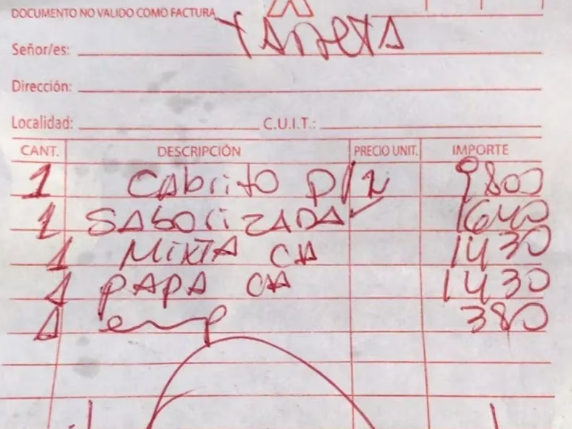 DOCUMENTO NO VALIDO COMO FACTURA
Señor/es: TARJETA
Dirección:
Localidad: C.U.I.T.:
CANT. DESCRIPCIÓN PRECIO UNIT. IMPORTE
1 CAbrito P/2 9800
1 SABORIZADA 1640
1 MIXTA CH 1430
1 PAPA CH 1430
1 emp 380